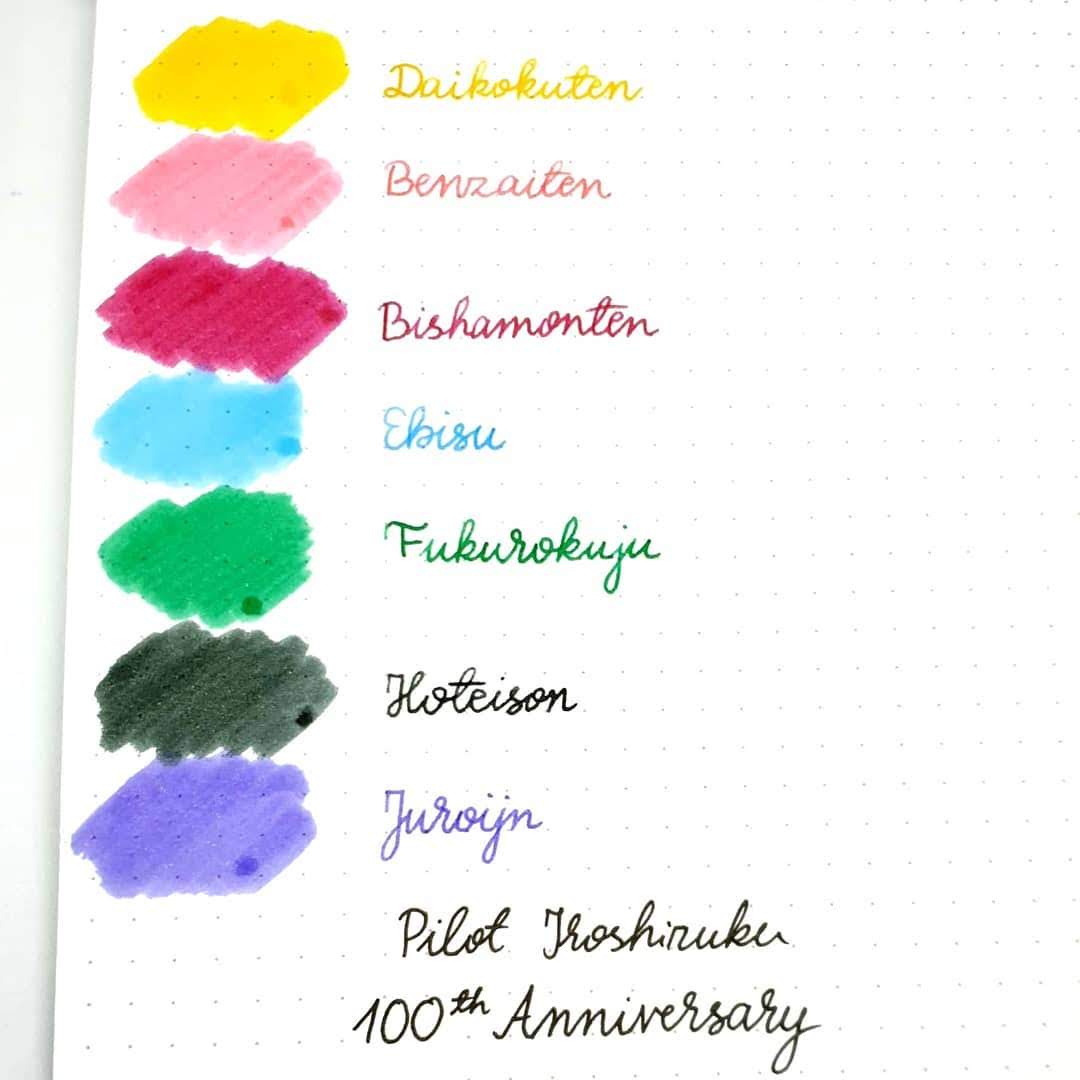 Daikokuten
Benzaiten
Bishamonten
Ebisu
Fukurokuju
Hoteison
Juroijn
Pilot Iroshizuku
100th Anniversary